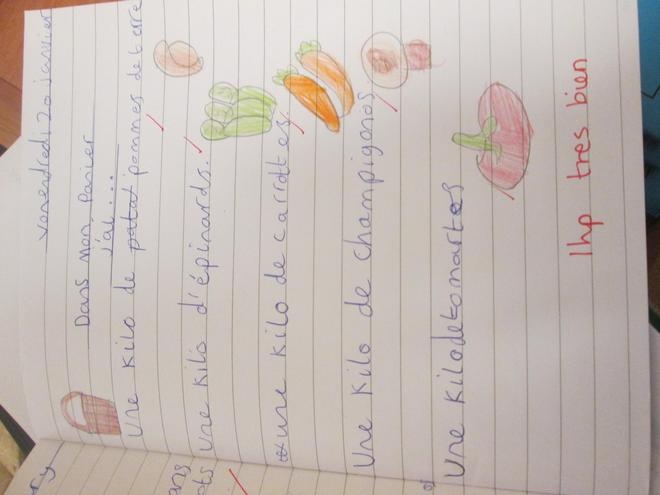 venendredi 20 janvier
Dans mon panier
j'ai ...
une kilo de patat pommes de terre
une kilo d'épinards.
une kilo de carrottes
une kilo de champigons
Une kilo de tomartes
1hp tres bien